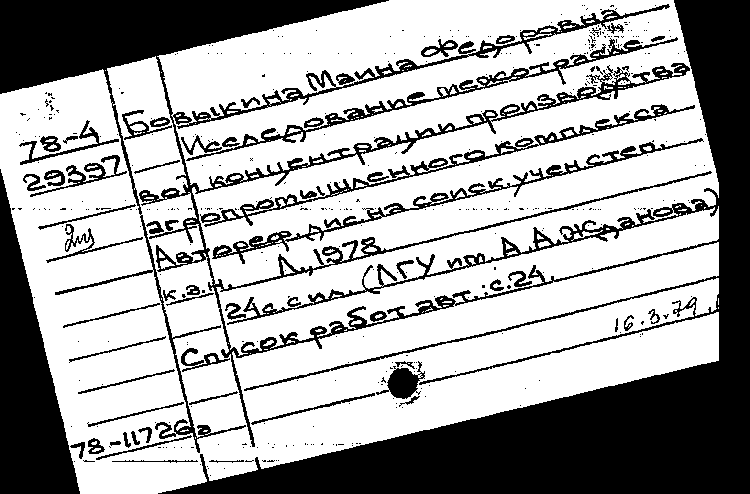 Бовыкина, Маина Федоровна
78-4
29397
Исследование межотрасле-
вой концентрации производства
агропромышленного комплекса.
Автореф. дис. на соиск. учен. степ.
к.э.н. Л., 1978.
24 с. с ил. (ЛГУ им. А.А. Жданова)
Список работ авт.: с. 24.
16.3.79
78-11726а